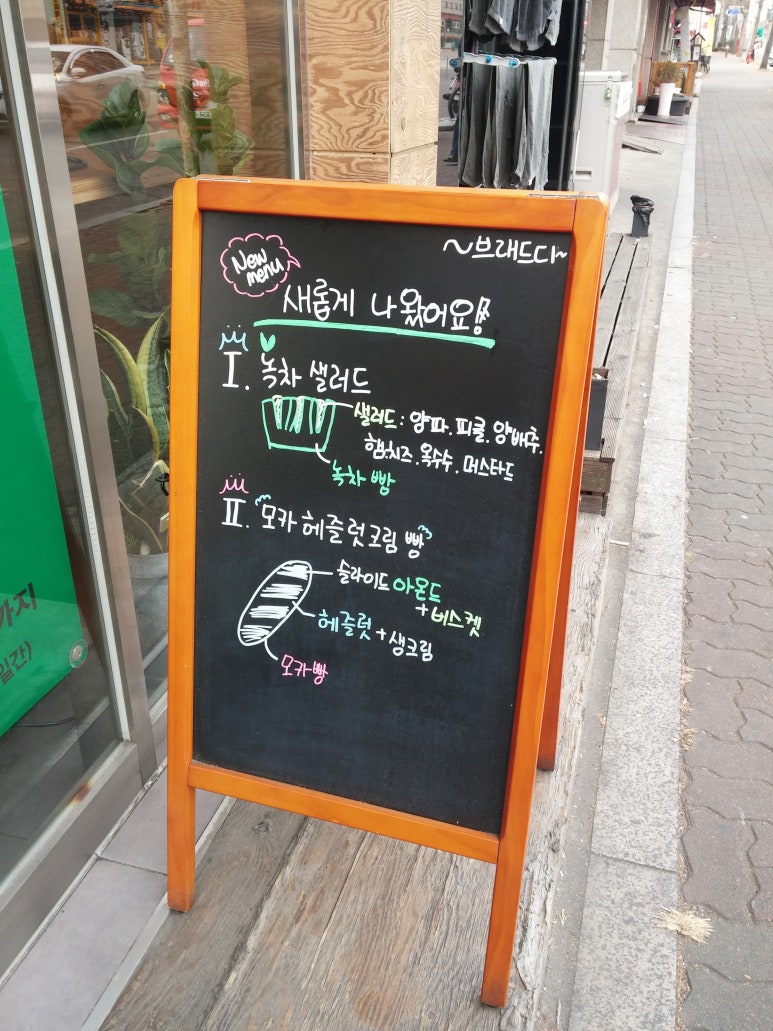 ~브래드디~
New
menu
새롭게 나왔어요!
I. 녹차 샐러드
샐러드 : 양파. 피클. 양배추.
햄.치즈. 옥수수. 머스타드
녹차 빵
II. 모카 헤즐럿크림 빵
슬라이드 아몬드
+ 버스켓
헤즐럿 + 생크림
모카빵
까지
일간)